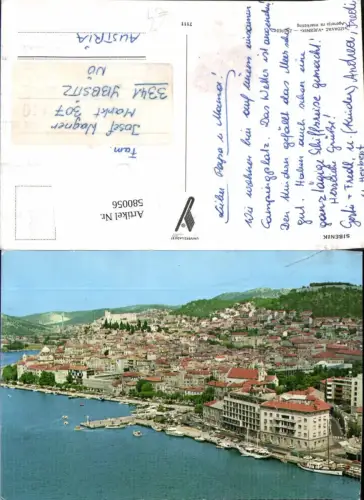 Liebe Papa u Mama!
Wir wohnen hier auf einem einsamen
Campingplatz. Das Wetter ist ausgezeichnet.
Den Kindern gefällt das Meer sehr
gut. Haben auch schon eine
ganz lange Schiffsreise gemacht!
Herzliche Grüße!
Gerti + Friedl. u (Kinder) Andrea, Fredi
u Herbert
Fam.
Josef Wagner
Markt 307
3341 YBBSITZ
NÖ
AUSTRIA
Artikel Nr.
580056
ŠIBENIK